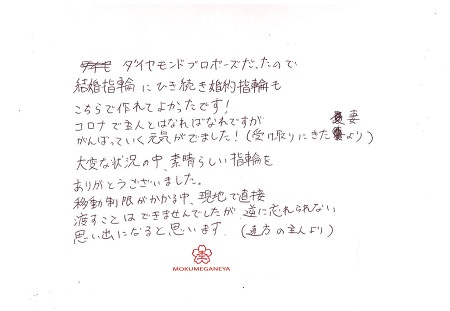 ダイヤモンドプロポーズだったので
結婚指輪にひき続き婚約指輪も
こちらで作れてよかったです!
コロナで主人とはなればなれですが
がんばっていく元気がでました!(受け取りにきた妻より)
大変な状況の中、素晴らしい指輪を
ありがとうございました。
移動制限がかかる中、現地で直接
渡すことはできませんでしたが、逆に忘れられない
思い出になると思います。(遠方の主人より)
MOKUMEGANEYA